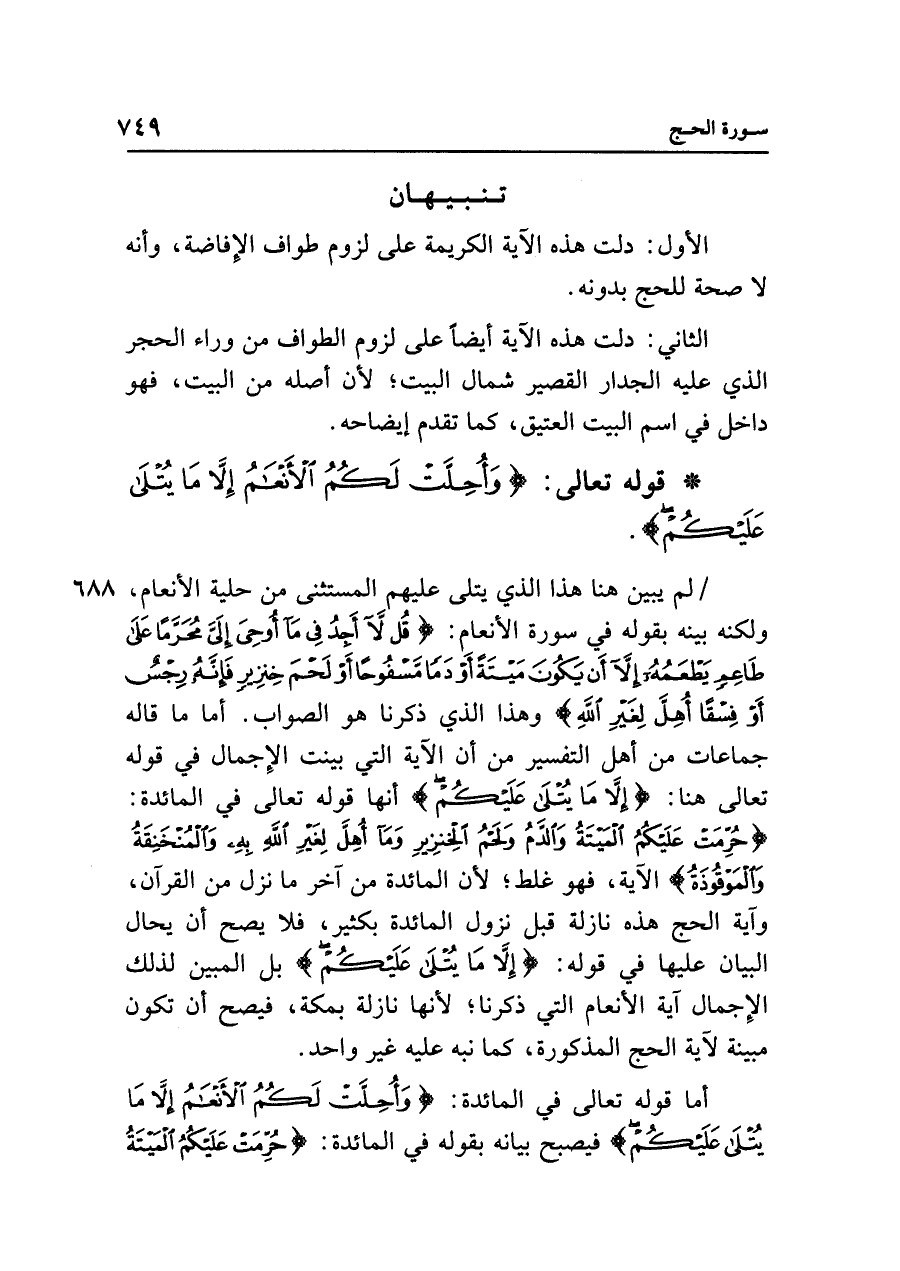 سورة الحج ٧٤٩
تنبيهان
الأول: دلت هذه الآية الكريمة على لزوم طواف الإفاضة، وأنه
لا صحة للحج بدونه.
الثاني: دلت هذه الآية أيضاً على لزوم الطواف من وراء الحجر
الذي عليه الجدار القصير شمال البيت؛ لأن أصله من البيت، فهو
داخل في اسم البيت العتيق، كما تقدم إيضاحه.
* قوله تعالى: ﴿وَأُحِلَّتْ لَكُمُ ٱلْأَنْعَٰمُ إِلَّا مَا يُتْلَىٰ
عَلَيْكُمْۖ﴾.
/ لم يبين هنا هذا الذي يتلى عليهم المستثنى من حلية الأنعام، ٦٨٨
ولكنه بينه بقوله في سورة الأنعام: ﴿قُل لَّآ أَجِدُ فِى مَآ أُوحِىَ إِلَىَّ مُحَرَّمًا عَلَىٰ
طَاعِمٍ يَطْعَمُهُۥٓ إِلَّآ أَن يَكُونَ مَيْتَةً أَوْ دَمًا مَّسْفُوحًا أَوْ لَحْمَ خِنزِيرٍ فَإِنَّهُۥ رِجْسٌ
أَوْ فِسْقًا أُهِلَّ لِغَيْرِ ٱللَّهِ﴾ وهذا الذي ذكرنا هو الصواب. أما ما قاله
جماعات من أهل التفسير من أن الآية التي بينت الإجمال في قوله
تعالى هنا: ﴿إِلَّا مَا يُتْلَىٰ عَلَيْكُمْۖ﴾ أنها قوله تعالى في المائدة:
﴿حُرِّمَتْ عَلَيْكُمُ ٱلْمَيْتَةُ وَٱلدَّمُ وَلَحْمُ ٱلْخِنزِيرِ وَمَآ أُهِلَّ لِغَيْرِ ٱللَّهِ بِهِۦ وَٱلْمُنْخَنِقَةُ
وَٱلْمَوْقُوذَةُ﴾ الآية، فهو غلط؛ لأن المائدة من آخر ما نزل من القرآن،
وآية الحج هذه نازلة قبل نزول المائدة بكثير، فلا يصح أن يحال
البيان عليها في قوله: ﴿إِلَّا مَا يُتْلَىٰ عَلَيْكُمْۖ﴾ بل المبين لذلك
الإجمال آية الأنعام التي ذكرنا؛ لأنها نازلة بمكة، فيصح أن تكون
مبينة لآية الحج المذكورة، كما نبه عليه غير واحد.
أما قوله تعالى في المائدة: ﴿وَأُحِلَّتْ لَكُمُ ٱلْأَنْعَٰمُ إِلَّا مَا
يُتْلَىٰ عَلَيْكُمْۖ﴾ فيصبح بيانه بقوله في المائدة: ﴿حُرِّمَتْ عَلَيْكُمُ ٱلْمَيْتَةُ